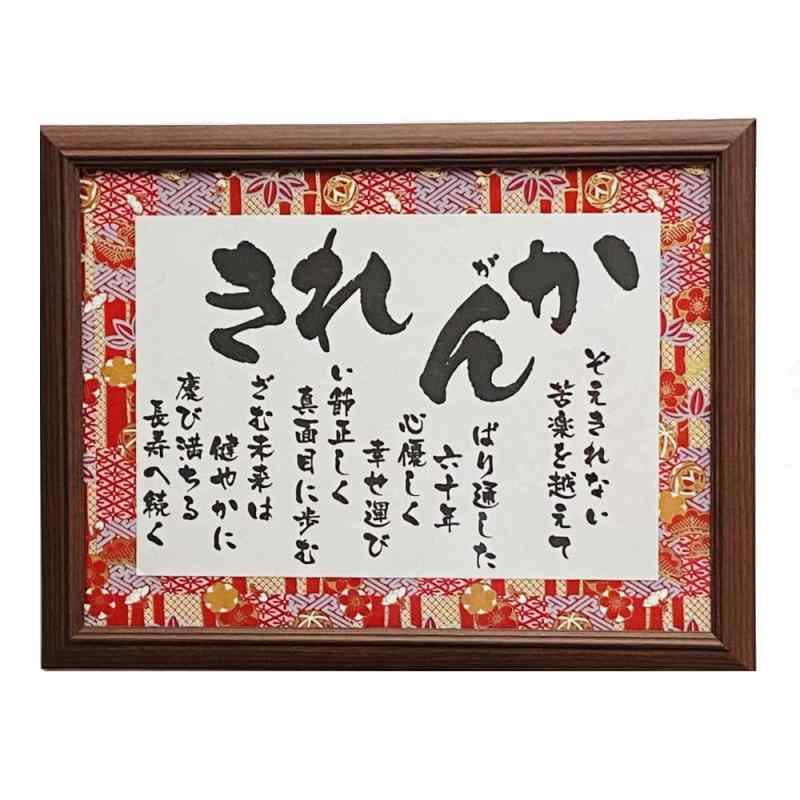 かぞえきれない
苦楽を越えて
がんばり通した
六十年
心優しく
幸せ運び
れい節正しく
真面目に歩む
きざむ未来は
健やかに
慶び満ちる
長寿へ続く